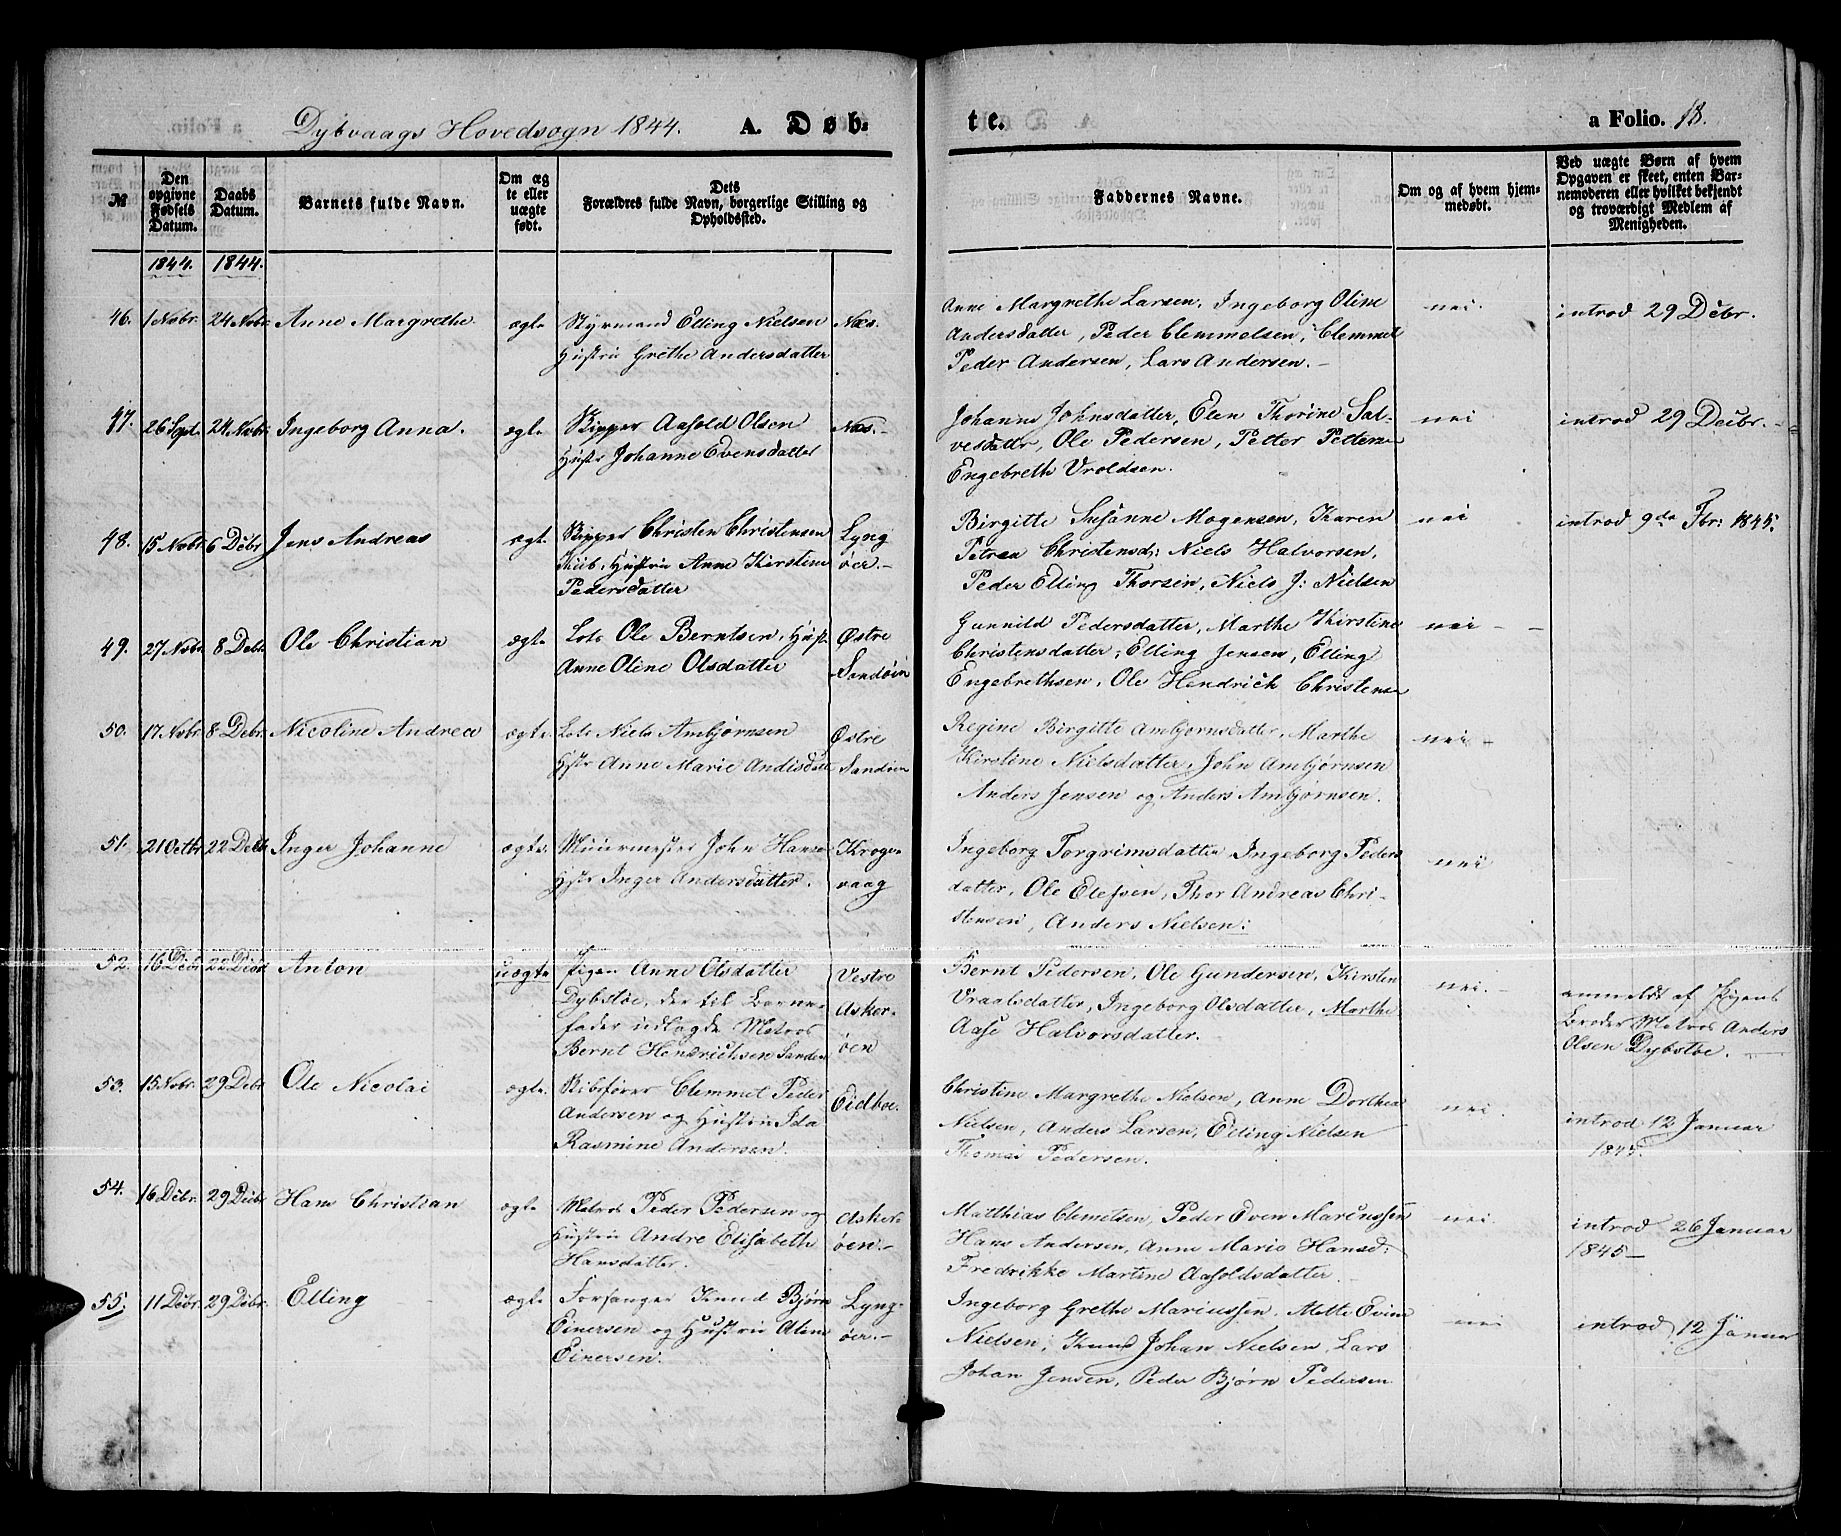 Dybvaags Hovedsogn 1844. A. Døb-
te. a Folio. 18.
№
Den opgivne Fødsels Datum.
Daabs Datum.
Barnets fulde Navn.
Om ægte eller uægte født.
Dets Forældres fulde Navn, borgerlige Stilling og Opholdssted.
Faddernes Navne.
Om og af hvem hjemmedøbt.
Ved uægte Børn af hvem Opgaven er skeet, enten Barnemoderen eller hvilket bekjendt og troværdigt Medlem af Menigheden.
1844. 1844.
46. 1 Nobr. 24 Nobr. Anne Margrethe. ægte Styrmand Elling Nielsen Næs.
Hustrü Grethe Andersdatter
Anne Margrethe Larsen, Ingeborg Oline
Andersdatter, Peder Clemmetsen, Clemmet
Peder Andersen, Lars Andersen.
nei. introd 29 Debr.
47. 26 Sept. 24 Nobr. Ingeborg Anna. ægte Skipper Aasold Olsen Næs.
Hustr Johanne Evensdatter
Johanne Johnsdatter, Elen Thorine Sal-
vesdattr, Ole Pedersen, Petter Pettersen
Engebreth Vroldsen.
nei introd 29 Decbr.
48. 15 Nobr 6 Debr Jens Andreas ægt. Skipper Christen Christensen Lyng
Kiib, Hustrü Anne Kirstine øer.
Pedersdatter
Birgitte Susanne Mogensen, Karen
Petrea Christensd: Niels Halvorsen,
Peder Elling Thorsen, Niels J: Nielsen
nei introd 9de Fbr: 1845.
49. 27 Nobr. 8 Debr. Ole Christian ægte Lots Ole Berntsen, Hust. Østre
Anne Oline Olsdatter Sandøen
Gunnild Pedersdatter, Marthe Kirstine
Christensdatter, Elling Jensen, Elling
Engebrethsen, Ole Hendrich Christensen
nei
50. 17 Nobr 8 Debr. Nicoline Andrea ægte. Lots Niels Ambjørnsen Østre
Hstr Anne Marie Andisdatt Sandøen
Regine Birgitte Ambjørnsdatter, Marthe
Kirstine Nielsdatter, John Ambjørnsen
Anders Jensen og Anders Ambjørnsen.
nei
51. 21 Octbr 22 Debr Inger Johanne ægte. Müürmester John Hansen Krogen
Hstr Inger Andersdatter. vaag
Ingeborg Torgrimsdatter Ingeborg Peders
datter, Ole Elefsen, Thor Andreas Chri-
stensen, Anders Nielsen.
nei
52. 16 Debr. 22 Debr Anton uægte Pigen Anne Olsdatter Vestre
Dybstøe, der til Barne- Asker-
fader udlagde Matros øen
Bernt Hendrichsen Sandøen
Bernt Pedersen, Ole Gundersen, Kirsten
Vraalsdatter, Ingeborg Olsdatter, Marthe
Aase Halvorsdatter.
nei.
anmeldt af Pigens
Broder Matros Anders
Olsen Dybstøe.
53. 15 Nobr. 29 Debr Ole Nicolai ægte. Skibsfører Clemmet Peder Eidboe.
Andersen og Hustrü Ida
Rasmine Andersen.
Christine Margrethe Nielsen, Anne Dorthea
Nielsen, Anders Larsen, Elling Nielsen
Thomas Pedersen.
nei. introd 12 Januar
1845.
54. 16 Debr. 29 Debr Hans Christian ægte Matros Peder Pedersen og Asker-
Hustrü Andre Elisabeth øen.
Hansdatter.
Matthias Clemetsen, Peder Even Marcussen
Hans Andersen, Anne Marie Hansd:
Fredrikke Martine Aasoldsdatter.
nei. introd 26 Januar
1845
55. 11 Debr 29 Debr. Elling ægte Forsanger Knud Bjørn Lyng-
Einersen og Hustrü Aline øer.
Einersen.
Ingeborg Grethe Mariussen, Mette Evine
Nielsen, Knud Johan Nielsen, Lars
Johan Jensen, Peder Bjørn Pedersen
nei introd 12 Januar